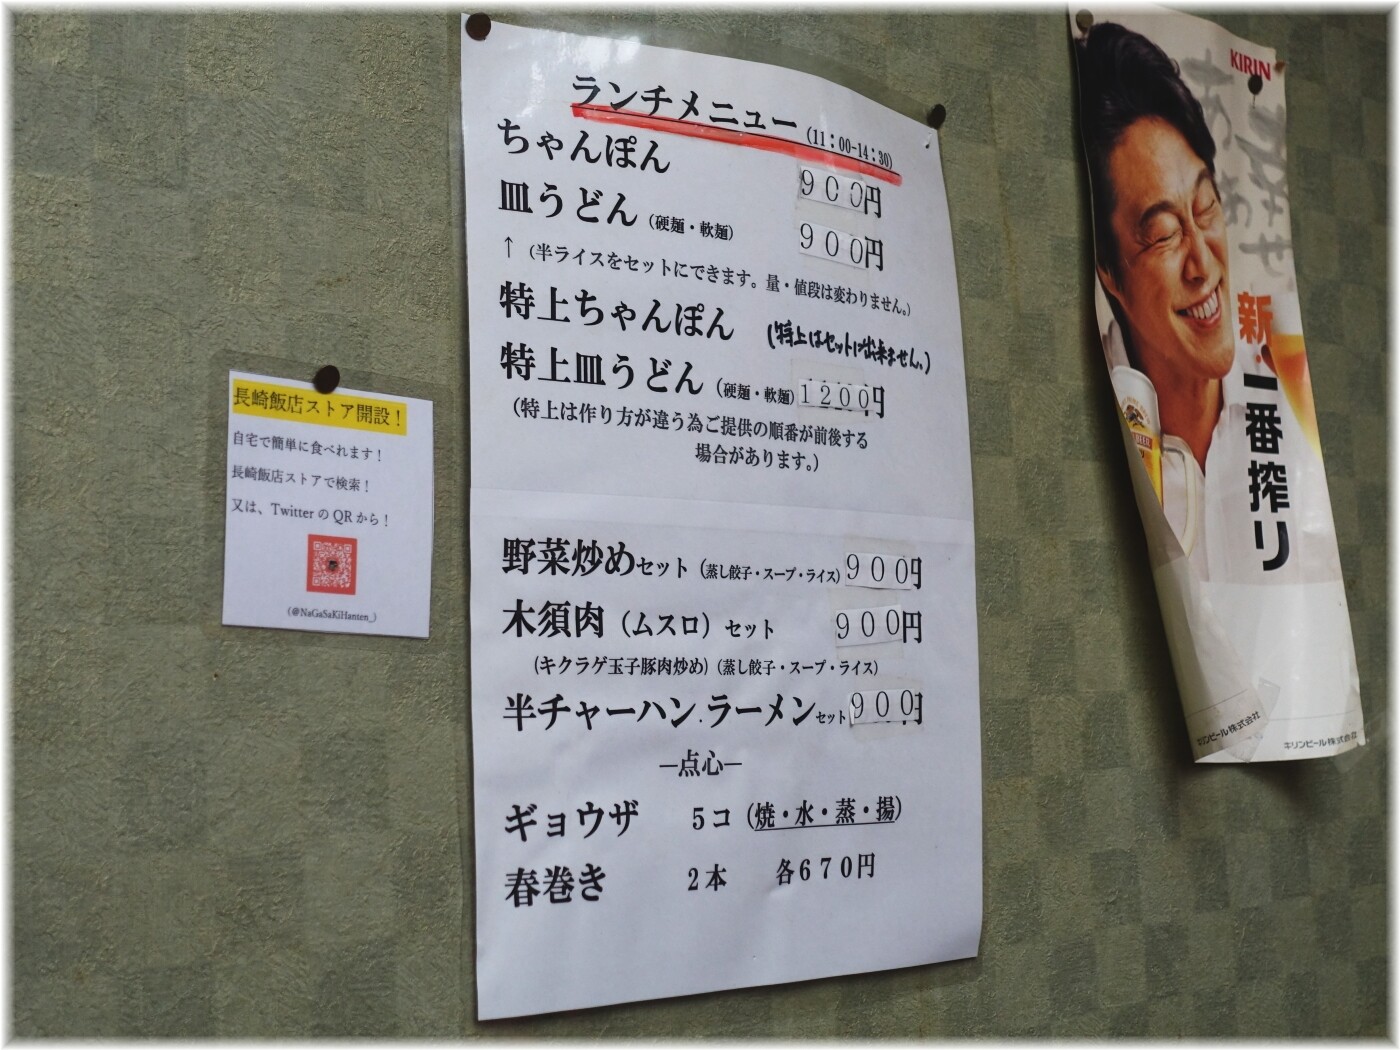 ランチメニュー(11:00-14:30)
ちゃんぽん 900円
皿うどん(硬麺・軟麺) 900円
↑(半ライスをセットにできます。量・値段は変わりません。)
特上ちゃんぽん (特上はセット出来ません。)
特上皿うどん(硬麺・軟麺)1200円
(特上は作り方が違う為ご提供の順番が前後する
場合があります。)
野菜炒めセット(蒸し餃子・スープ・ライス)900円
木須肉(ムスロ)セット 900円
(キクラゲ玉子豚肉炒め)(蒸し餃子・スープ・ライス)
半チャーハン.ラーメンセット900円
―点心―
ギョウザ 5コ(焼・水・蒸・揚)
春巻き 2本 各670円
長崎飯店ストア開設!
自宅で簡単に食べれます!
長崎飯店ストアで検索!
又は、TwitterのQRから!
(@NaGaSaKiHanten_)
KIRIN
新・一番搾り
キリンビール株式会社
キリンビール株式会社